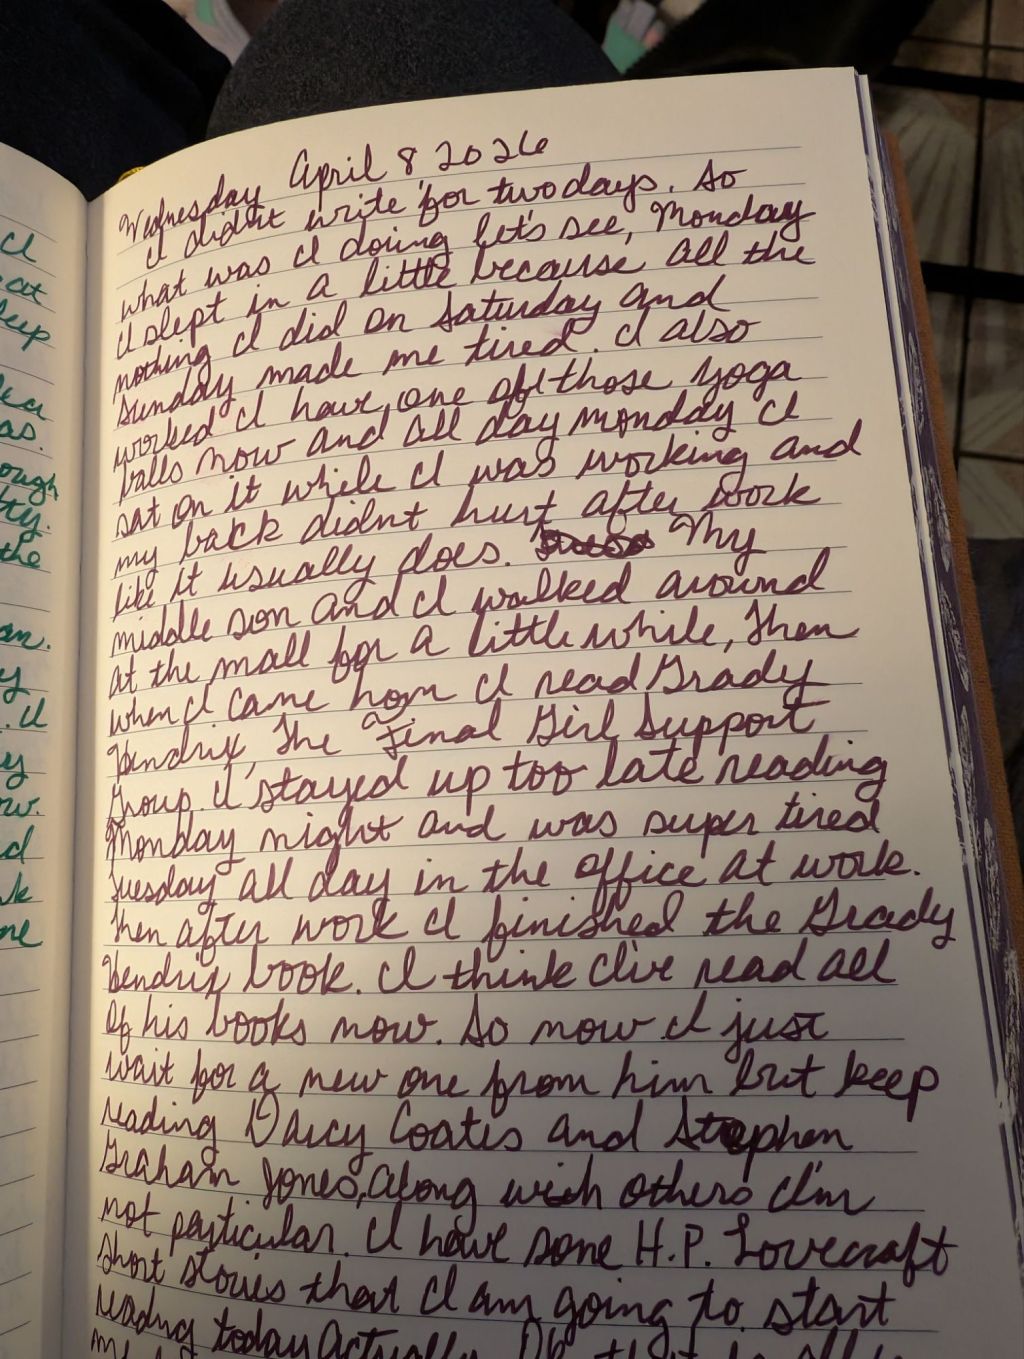 Wednesday April 8, 2026
I didn't write for two days. So
what was I doing let's see, Monday
I slept in a little because all the
nothing I did on Saturday and
Sunday made me tired. I also
worked I have one of those yoga
balls now and all day monday I
sat on it while I was working and
my back didn't hurt after work
like it usually does. My
middle son and I walked around
at the mall for a little while, Then
when I came hom I read Grady
Hendrix, The Final Girl Support
Group. I stayed up too late reading
Monday night and was super tired
Tuesday all day in the office at work.
Then after work I finished the Grady
Hendrix book. I think I've read all
of his books now. So now I just
wait for a new one from him but keep
reading Darcy Coates and Stephen
Graham Jones, along with others I'm
not particular. I have some H.P. Lovecraft
short stories that I am going to start
reading today actually. Ok that is all
I
eat
eep
as.
ough
the
an.
y
. I
ey
ow.
d
k
ne